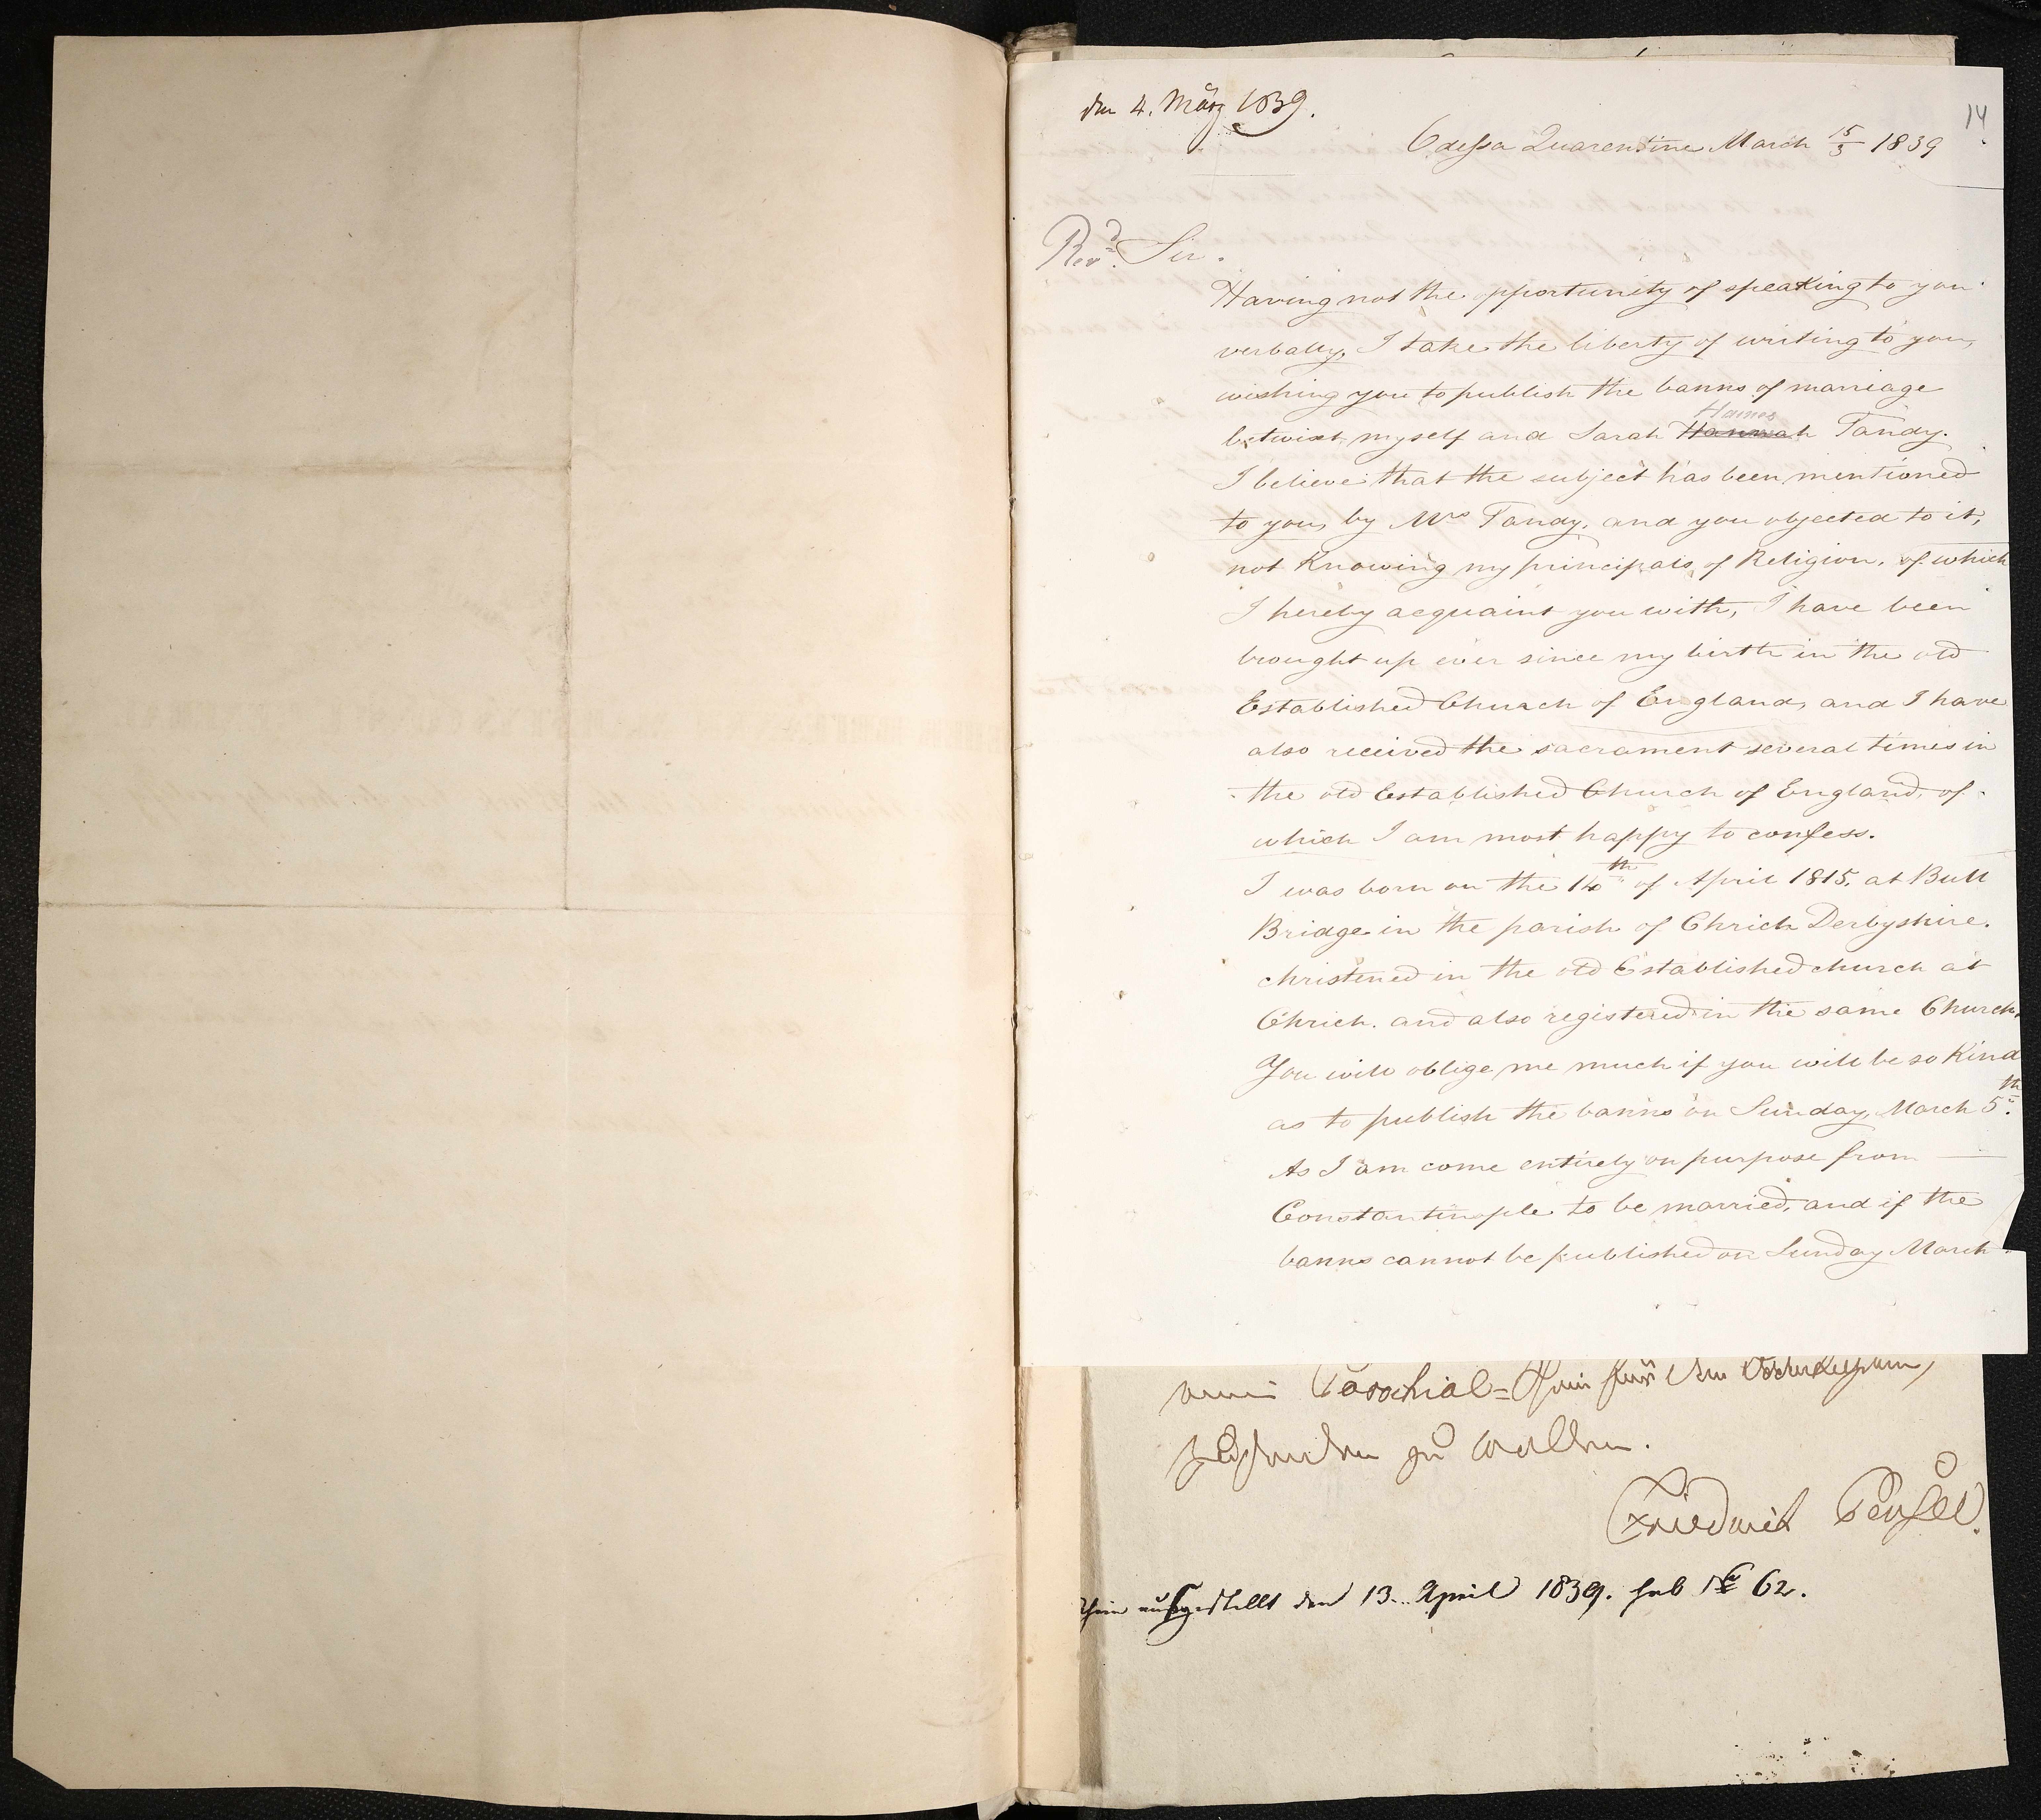 den 4. März 1839.
14
Odessa Quarentine March 15/3 1839
Revd. Sir.
Having not the opportunity of speaking to you
verbally, I take the liberty of writing to you,
wishing you to publish the banns of marriage
Hames
betwixt myself and Sarah Hannah Tandy.
I believe that the subject has been mentioned
to you, by Mrs Tandy, and you objected to it,
not Knowing my principals of Religion. of which
I hereby acquaint you with, I have been
brought up ever since my birth in the old
Established Church of England, and I have
also received the sacrament several times in
the old Established Church of England, of
which I am most happy to confess.
I was born on the 14th of April 1815, at Bull
Bridge in the parish of Chrich Derbyshire.
christened in the old Established church at
Chrich. and also registered in the same Church.
You will oblige me much if you will be so Kind
as to publish the banns on Sunday, March 5th.
As I am come entirely on purpose from
Constantinople to be married, and if the
banns cannot be published on Sunday March
Parochial=
zu wollen.
Friedrich
ausgestellt den 13. April 1839. sub № 62.